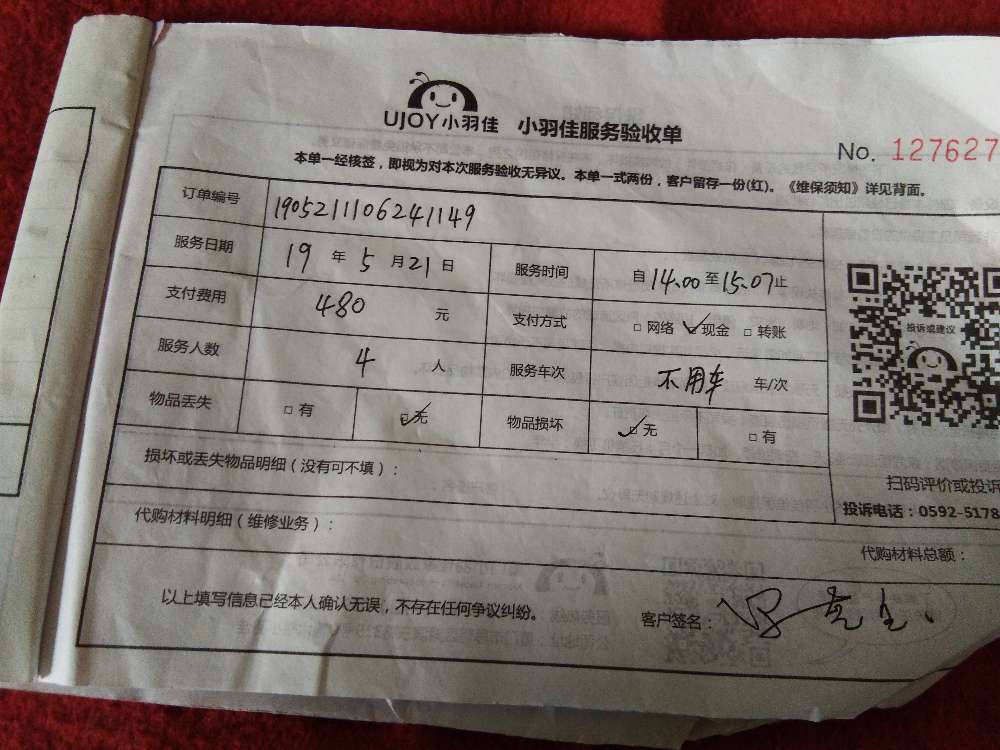 UJOY小羽佳 小羽佳服务验收单
No. 127627
本单一经核签，即视为对本次服务验收无异议。本单一式两份，客户留存一份(红)。《维保须知》详见背面。
订单编号 1905211106241149
服务日期 19 年 5 月 21 日 服务时间 自 14.00 至 15.07 止
支付费用 480 元 支付方式 □ 网络 ✓现金 □ 转账
服务人数 4 人 服务车次 不用车 车/次
物品丢失 □ 有 ☑无 物品损坏 ☑无 □ 有
投诉或建议
损坏或丢失物品明细（没有可不填）：
扫码评价或投诉
投诉电话：0592-5178
代购材料明细（维修业务）：
代购材料总额：
以上填写信息已经本人确认无误，不存在任何争议纠纷。
客户签名：